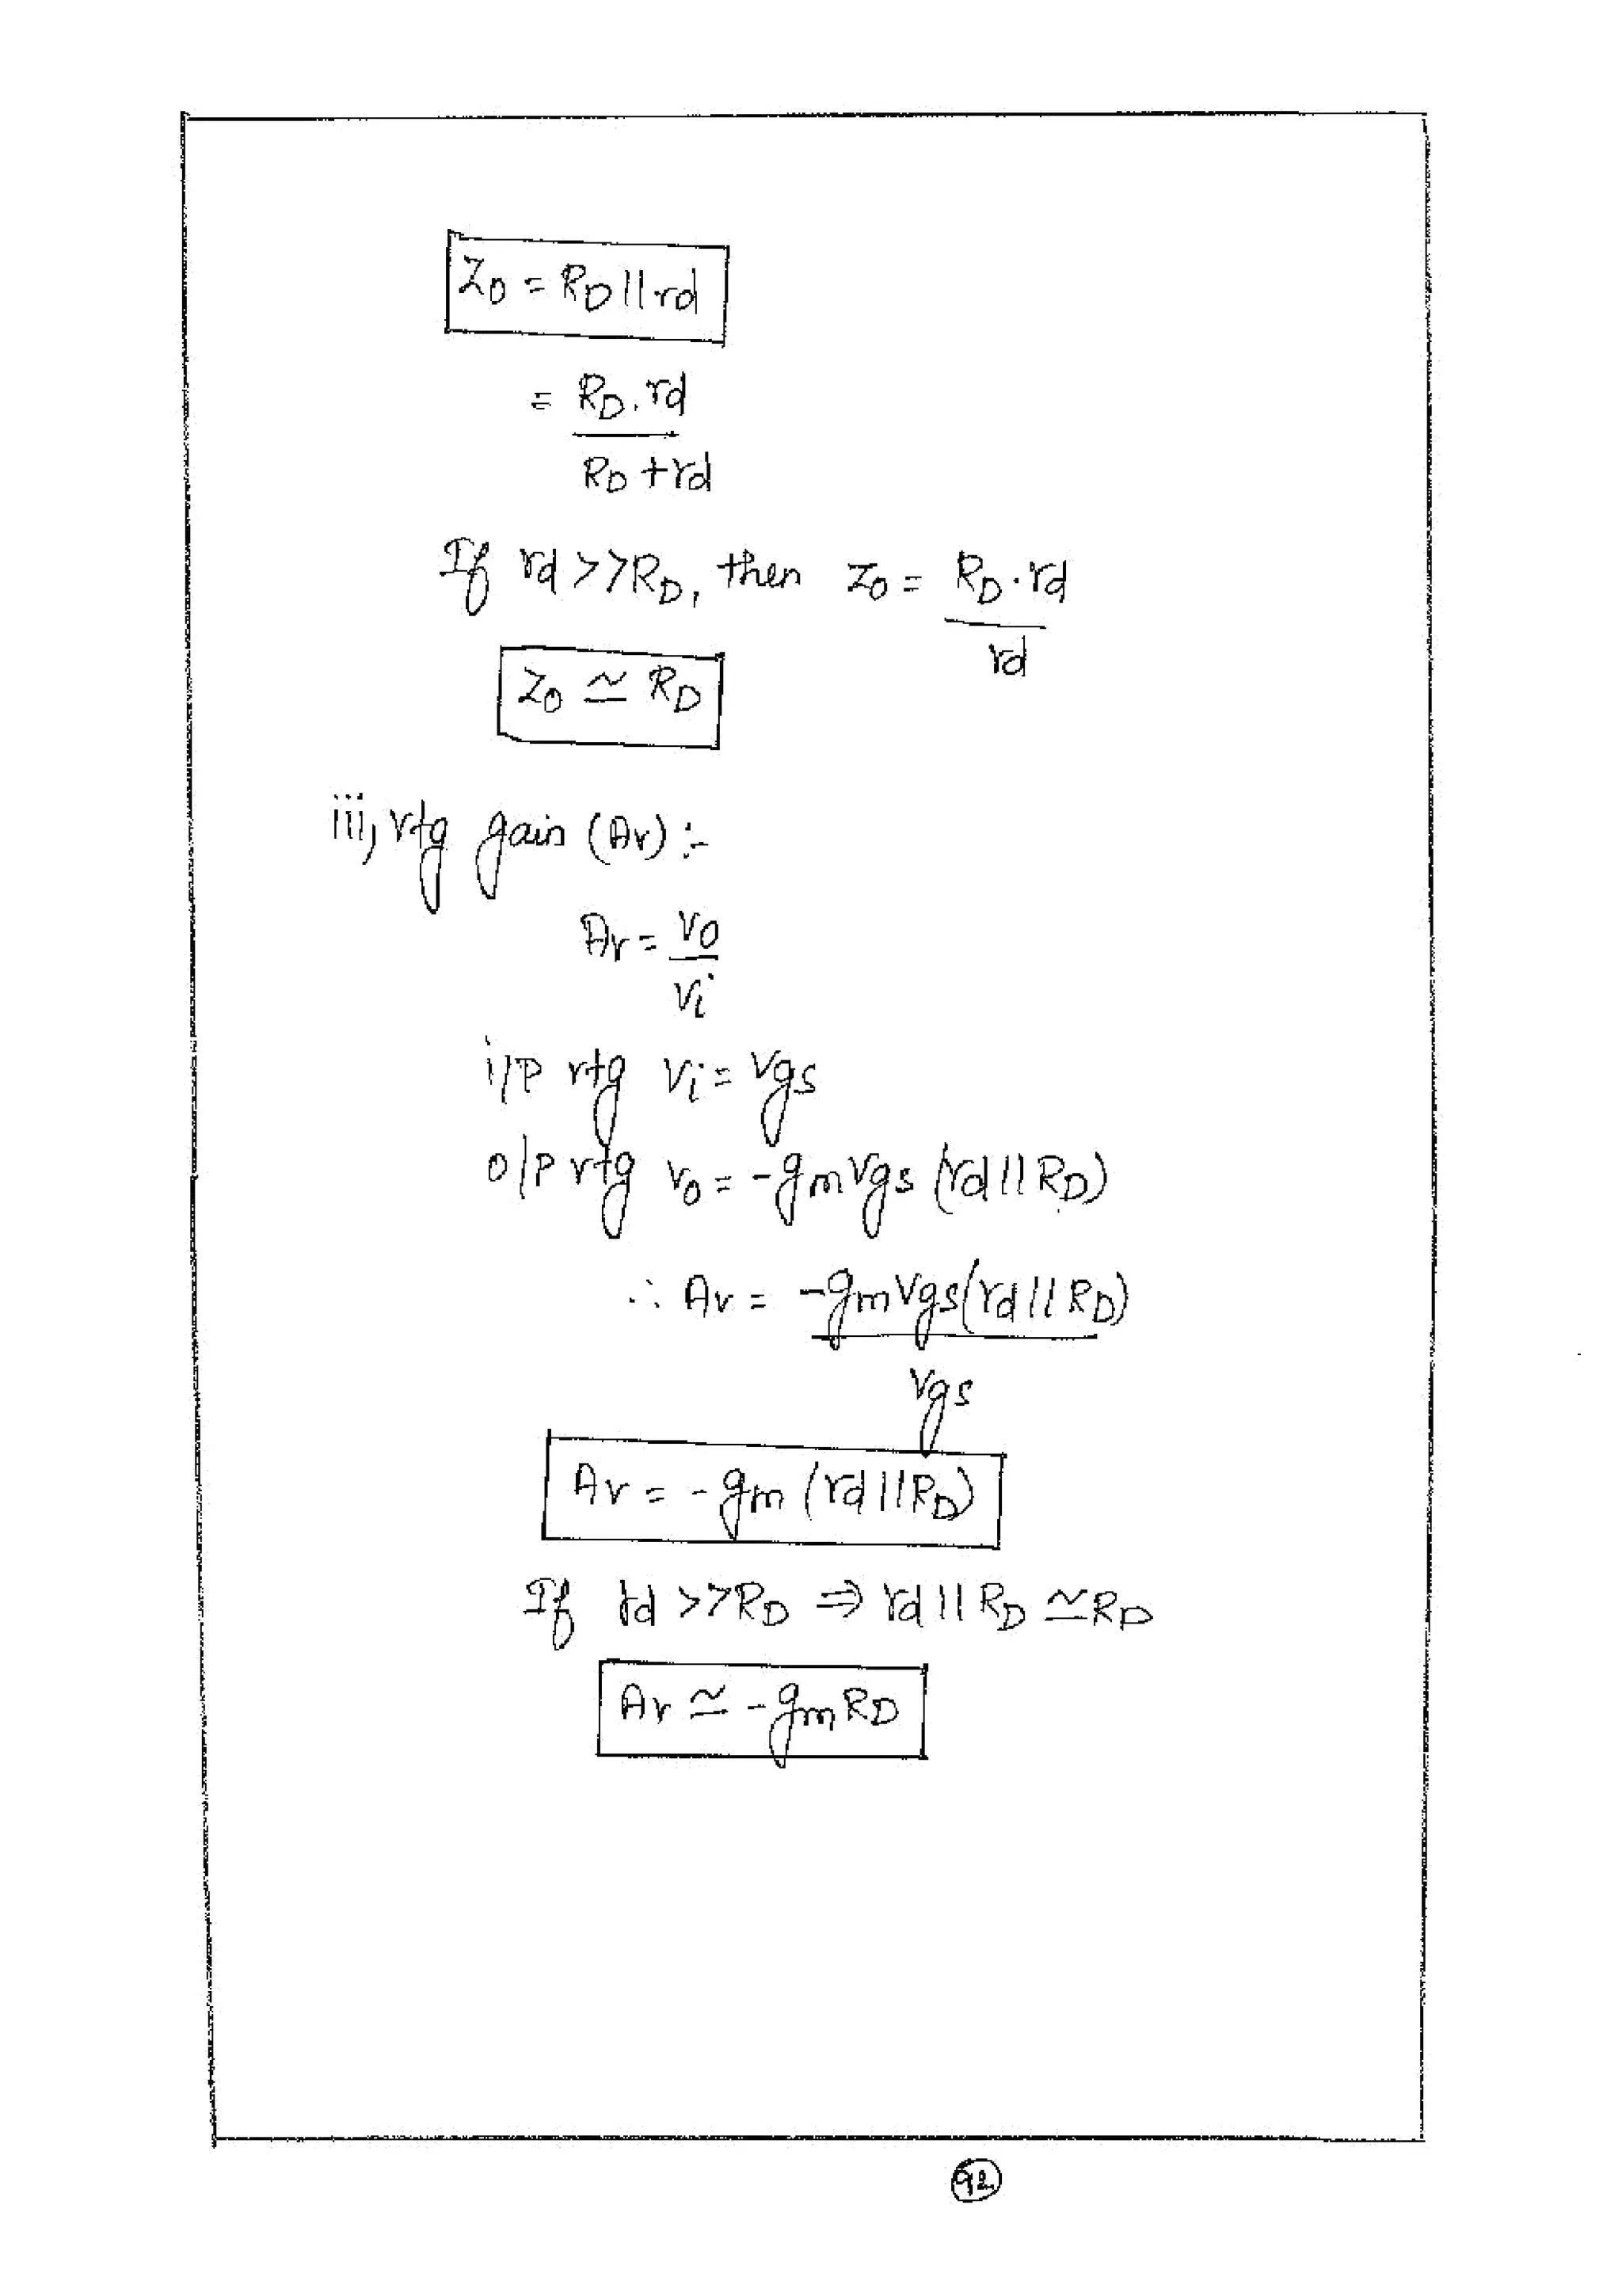 Z₀ = R_D || rd
= R_D . rd
R_D + rd
If rd >> R_D, then Z₀ = R_D . rd
rd
Z₀ ≃ R_D
iii, vtg gain (Av) :-
Av = V₀
Vi
i/P vtg Vi = Vgs
o/P vtg V₀ = -gmVgs (rd || R_D)
∴ Av = -gmVgs(rd || R_D)
Vgs
Av = -gm (rd || R_D)
If rd >> R_D ⇒ rd || R_D ≃ R_D
Av ≃ -gmR_D
92